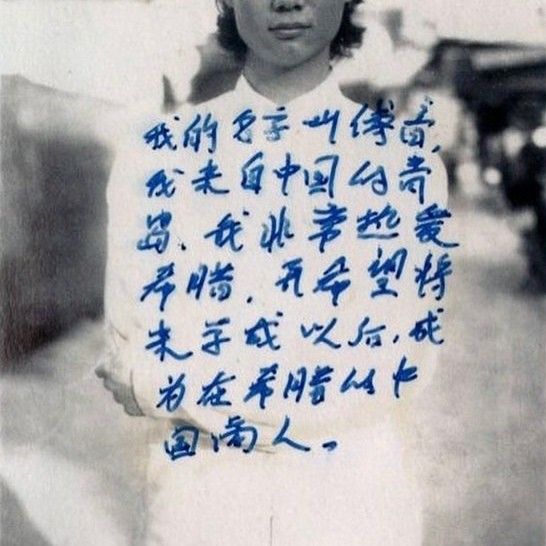 我的名字叫傅音,
我来自中国的青
岛、我非常热爱
希腊,并希望将
来学成以后,成
为在希腊的中
国商人。